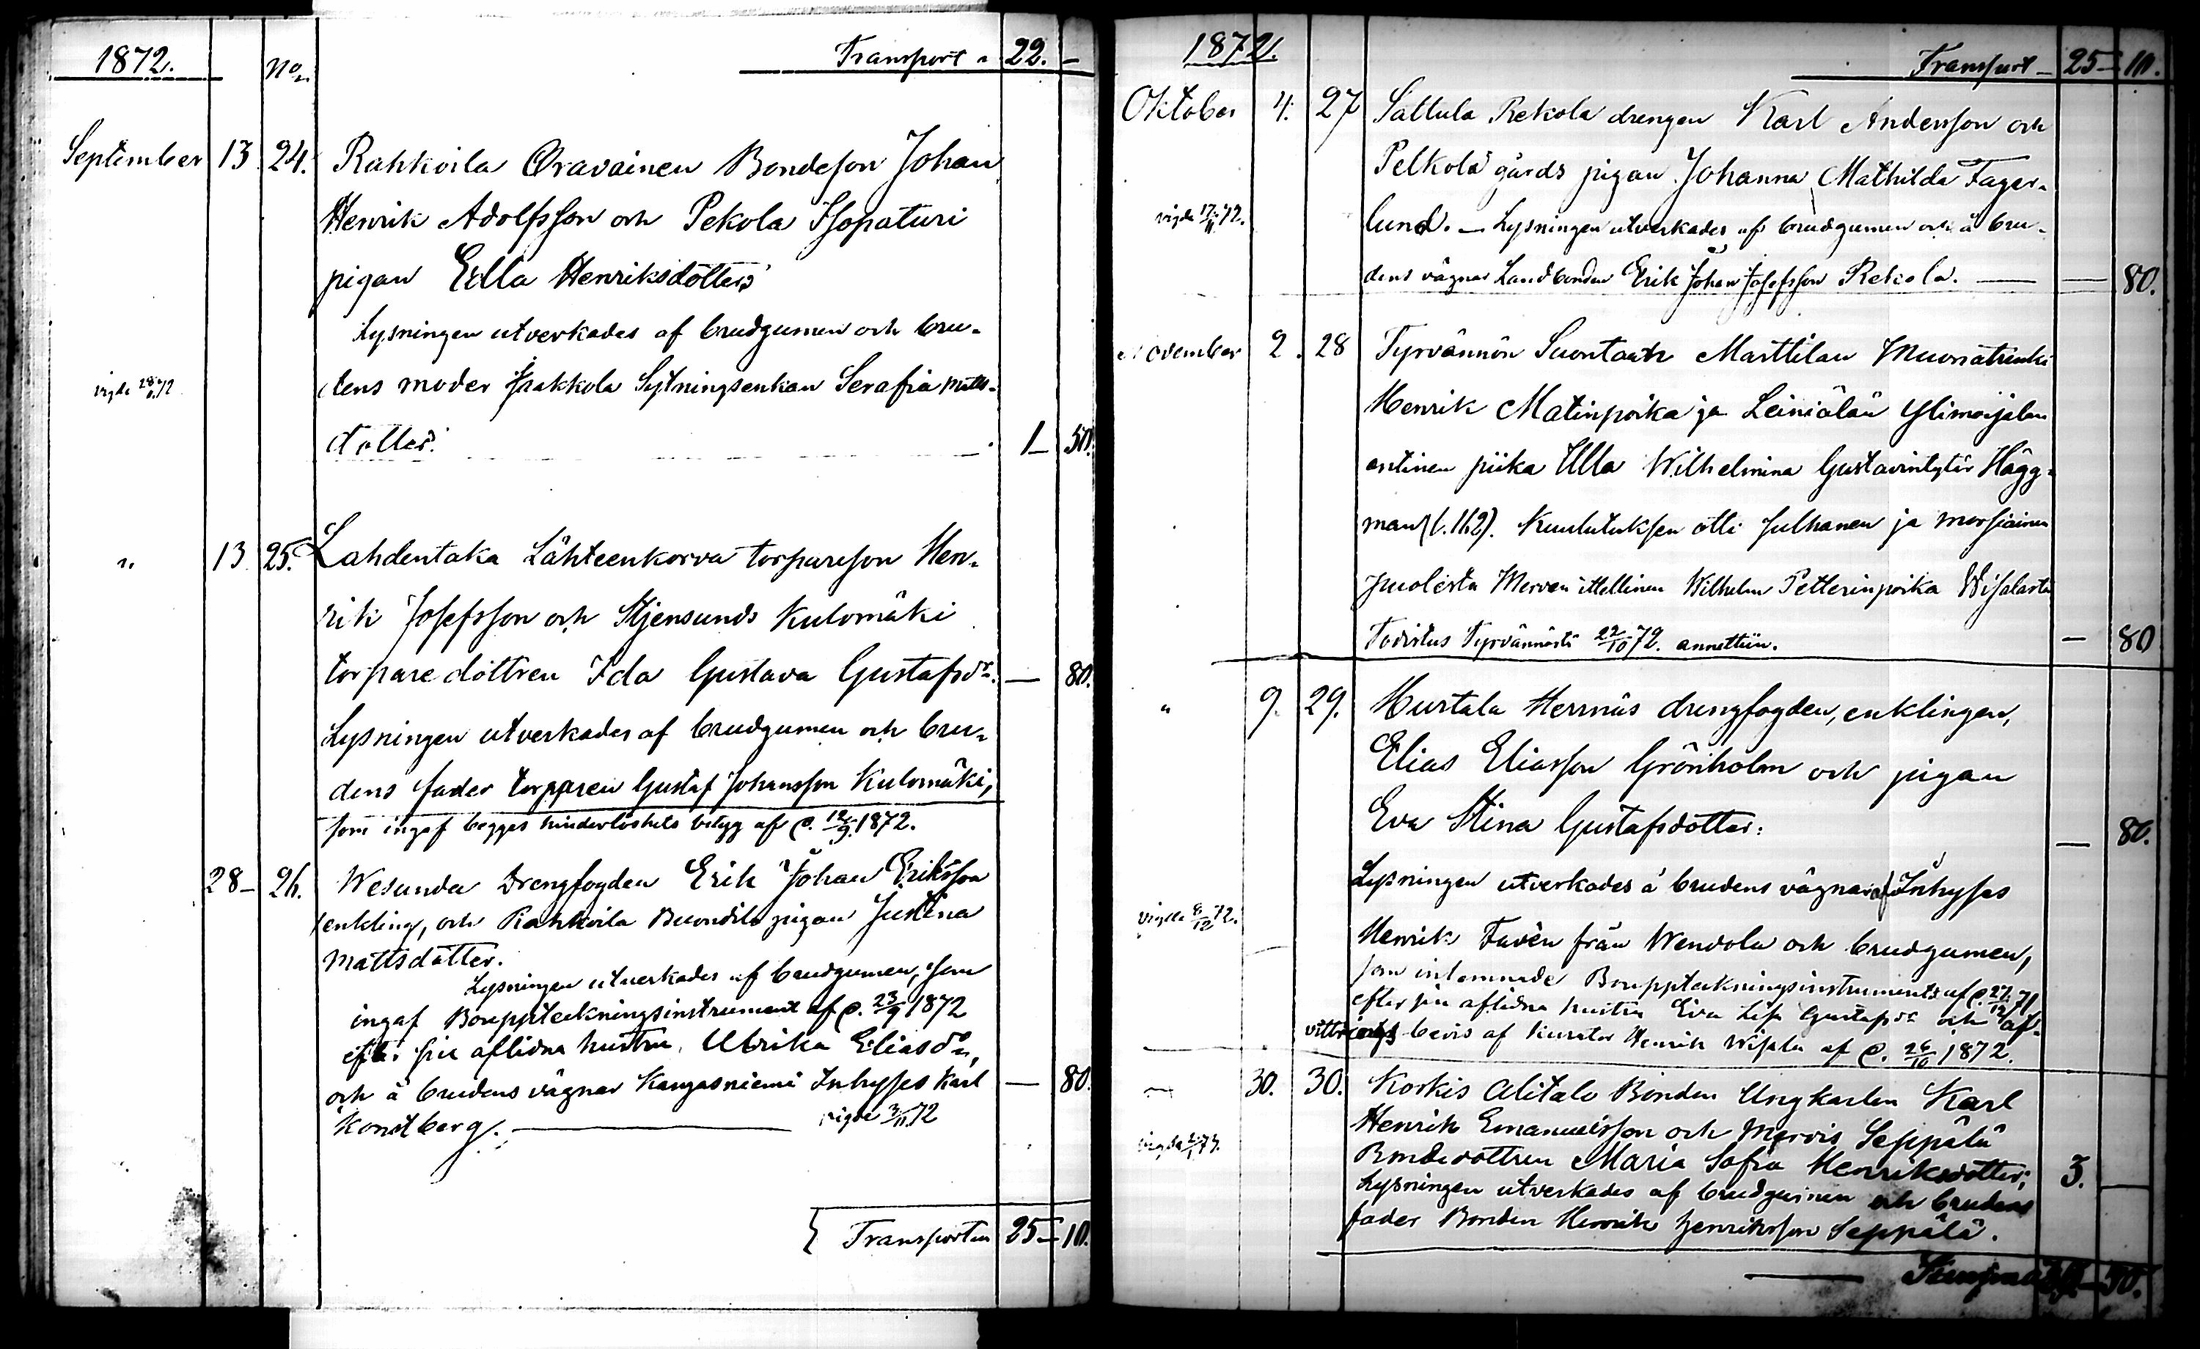 1872.
No
Transport " 22. –
September 13 24. Rahkoila Oravainen Bondeson Johan
Henrik Adolfsson och Pekola Isopaturi
pigan Eella Henriksdotter
Lysningen utverkades af brudgumen och bru-
dens moder Jaakkola Sytningsenkan Serafia Matts-
dotter. 1 – 50.
vigde 72
" 13 25. Lahdentaka Lähteenkorva torpareson Hen-
rik Josefsson och Stjensunds Kulomäki
torparedottren Ida Gustava Gustafsdr. — 80.
Lysningen utverkades af brudgumen och bru-
dens fader torpparen Gustaf Johansson Kulomäki,
som ingaf begges hinderlöshets betyg af d. 12/9 1872.
28 – 26. Wesunda Drengfogden Erik Johan Eriksson
enkling, och Rahkoila Buondila pigan Justina
Mattsdotter.
Lysningen utverkades af brudgumen, som
ingaf Bouppteckningsinstrument af d. 23/9 1872
efter sin aflidna hustru, Ulrika Eliasdr,
och å brudens vägnar Kangasniemi Inhyses Karl — 80.
Konstberg. — vigde 3/11 72
Transporten 25 – 10.
1872.
Transport – 25 – 10.
Oktober 4. 27 Sattula Rekola drengen Karl Andersson och
Pelkola gårds pigan Johanna Mathilda Fager-
lund. – Lysningen utverkades af brudgumen och å bru-
dens vägnar Landbonden Erik Johan Josefsson Rekola. — 80.
vigde 17/11 72.
November 2. 28 Tyrvännön Suontaan Marttilan
Henrik Matinpoika ja Leiniälän Ylimäijalan
entinen piika Ulla Wilhelmina Gustavintytär Hägg-
man (l.162). Kuulutuksen otti sulhanen ja morsiamen
puolesta Wilhelm Petterinpoika Wisalasta
Todistus Tyrvännöstä 22/10 72. annettiin. — 80
" 9. 29. Hurtala Herrnäs drengfogden, enklingen,
Elias Eliasson Grönholm och pigan
Eva Stina Gustafsdotter: — 80.
Lysningen utverkades å brudens vägnar af Inhyses
Henrik Favén från Wendola och brudgumen,
som inlemnade Bouppteckningsinstrument af d. 27/12 71
efter sin aflidna hustru Eva Lisa Gustafsdr och af-
vittrings bevis af Kurator Henrik Wisala af d. 26/10 1872.
vigde 8/12 72.
30. 30. Korkis Alitalo Bonden Ungkarlen Karl
Henrik Emanuelsson och Mervis Seppälä
Bondedottren Maria Sofia Henriksdotter; 3. —
Lysningen utverkades af brudgumen och brudens
fader Bonden Henrik Henriksson Seppälä.
Summa 50.